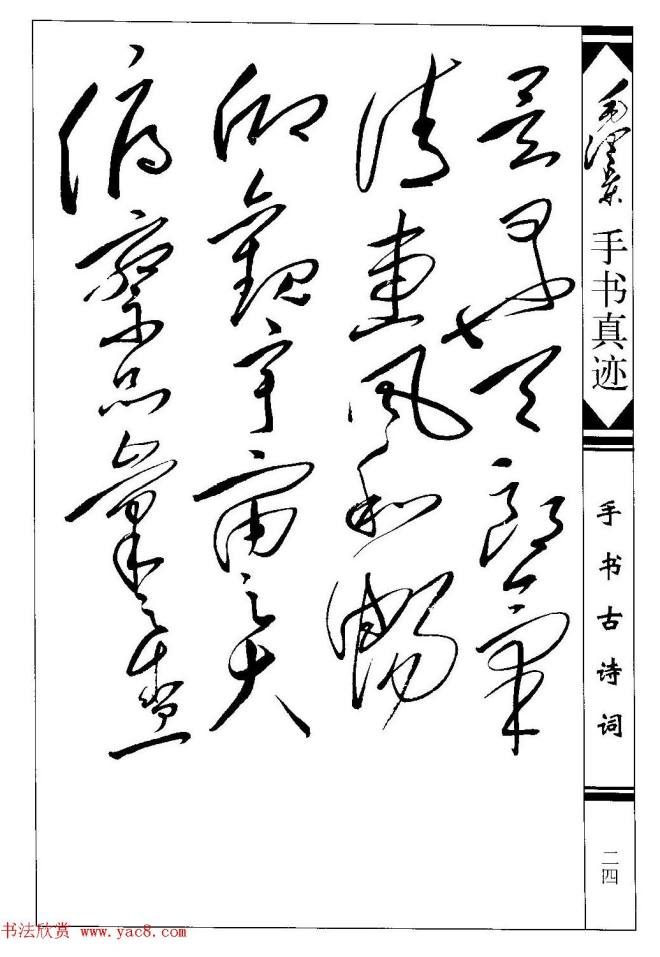 是日也天朗氣
清惠風和暢
仰觀宇宙之大
俯察品之盛
毛澤東
手书真迹
手书古诗词
二四
书法欣赏 www.yac8.com